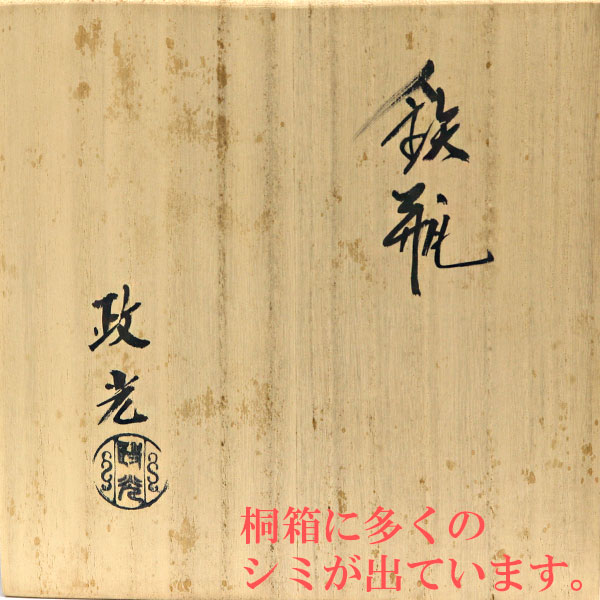 鉄瓶
政光
政光
桐箱に多くの
シミが出ています。